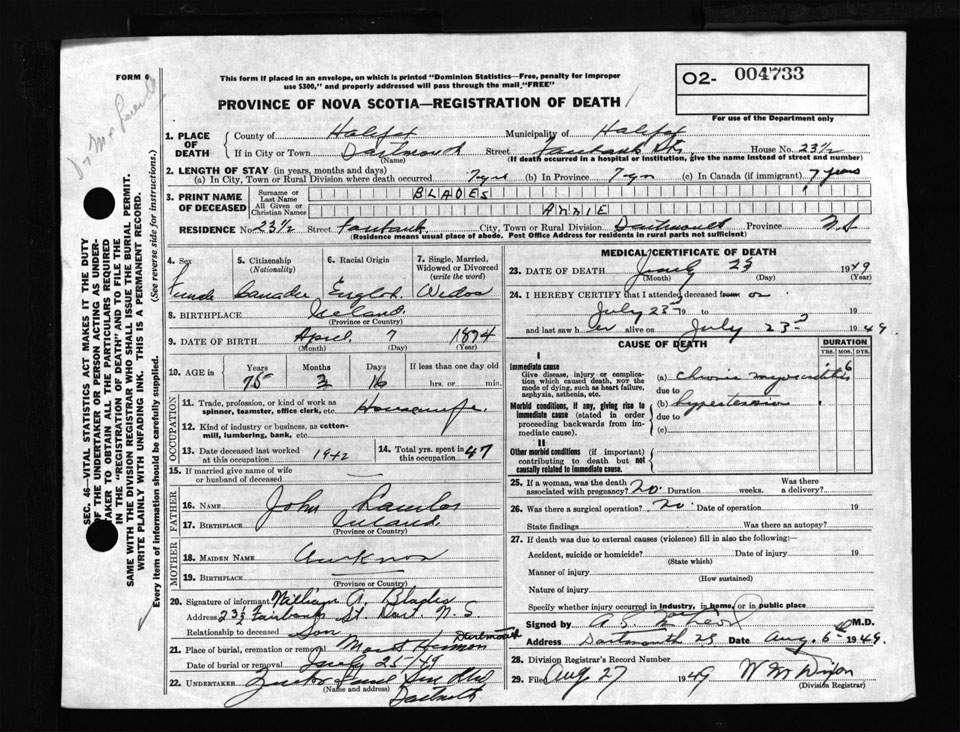 FORM 6
This form if placed in an envelope, on which is printed "Dominion Statistics—Free, penalty for improper
use $300," and properly addressed will pass through the mail "FREE"
O2- 004733
For use of the Department only
PROVINCE OF NOVA SCOTIA—REGISTRATION OF DEATH
1. PLACE OF DEATH County of Halifax Municipality of Halifax
If in City or Town Dartmouth Street Fairbank St. House No. 23½
(Name) (If death occurred in a hospital or institution, give the name instead of street and number)
2. LENGTH OF STAY (in years, months and days)
(a) In City, Town or Rural Division where death occurred 7 yrs (b) In Province 7 yrs (c) In Canada (if immigrant) 7 years
3. PRINT NAME OF DECEASED Surname or Last Name BLADES
All Given or Christian Names ANNIE
RESIDENCE No. 23½ Street Fairbank City, Town or Rural Division Dartmouth Province N.S
(Residence means usual place of abode. Post Office Address for residents in rural parts not sufficient)
4. Sex 5. Citizenship (Nationality) 6. Racial Origin 7. Single, Married, Widowed or Divorced (write the word)
8. BIRTHPLACE Ireland
(Province or Country)
9. DATE OF BIRTH April 7 1874
(Month) (Day) (Year)
10. AGE in Years 75 Months 3 Days 16 If less than one day old hrs. or min.
OCCUPATION
11. Trade, profession, or kind of work as spinner, teamster, office clerk, etc. Housewife
12. Kind of industry or business, as cotton-mill, lumbering, bank, etc.
13. Date deceased last worked at this occupation 1942 14. Total yrs. spent in this occupation 47
15. If married give name of wife or husband of deceased
FATHER
16. NAME John
17. BIRTHPLACE Ireland
(Province or Country)
MOTHER
18. MAIDEN NAME
19. BIRTHPLACE
(Province or Country)
20. Signature of informant William A. Blades
Address 23½ Fairbank St. Dart. N. S
Relationship to deceased Son
21. Place of burial, cremation or removal Mount Hermon Dartmouth
Date of burial or removal July 25/49
22. UNDERTAKER
(Name and address)
Dartmouth
MEDICAL CERTIFICATE OF DEATH
23. DATE OF DEATH July 23 1949
(Month) (Day) (Year)
24. I HEREBY CERTIFY that I attended deceased from on
July 23rd 19 to 19
and last saw her alive on July 23rd 1949.
CAUSE OF DEATH DURATION
YRS. MOS. DYS.
I
Immediate cause
Give disease, injury or complication which caused death, NOT the mode of dying, such as heart failure, asphyxia, asthenia, etc.
(a) Chronic myocarditis 6
due to
Morbid conditions, if any, giving rise to immediate cause (stated in order proceeding backwards from immediate cause).
(b) hypertension
due to
(c)
II
Other morbid conditions (if important) contributing to death but not causally related to immediate cause.
25. If a woman, was the death associated with pregnancy? no. Duration weeks. Was there a delivery?
26. Was there a surgical operation? no. Date of operation 19
State findings Was there an autopsy?
27. If death was due to external causes (violence) fill in also the following:—
Accident, suicide or homicide? Date of injury 19
(State which)
Manner of injury
(How sustained)
Nature of injury
Specify whether injury occurred in industry, in home, or in public place
Signed by M.D.
Address Dartmouth NS Date Aug. 6 1949.
28. Division Registrar's Record Number
29. Filed Aug 27 1949 W M Dixon
(Division Registrar)
SEC. 46—VITAL STATISTICS ACT MAKES IT THE DUTY
OF THE UNDERTAKER OR PERSON ACTING AS UNDER-
TAKER TO OBTAIN ALL THE PARTICULARS REQUIRED
IN THE "REGISTRATION OF DEATH" AND TO FILE THE
SAME WITH THE DIVISION REGISTRAR WHO SHALL ISSUE THE BURIAL PERMIT.
WRITE PLAINLY WITH UNFADING INK. THIS IS A PERMANENT RECORD.
Every item of information should be carefully supplied. (See reverse side for instructions.)